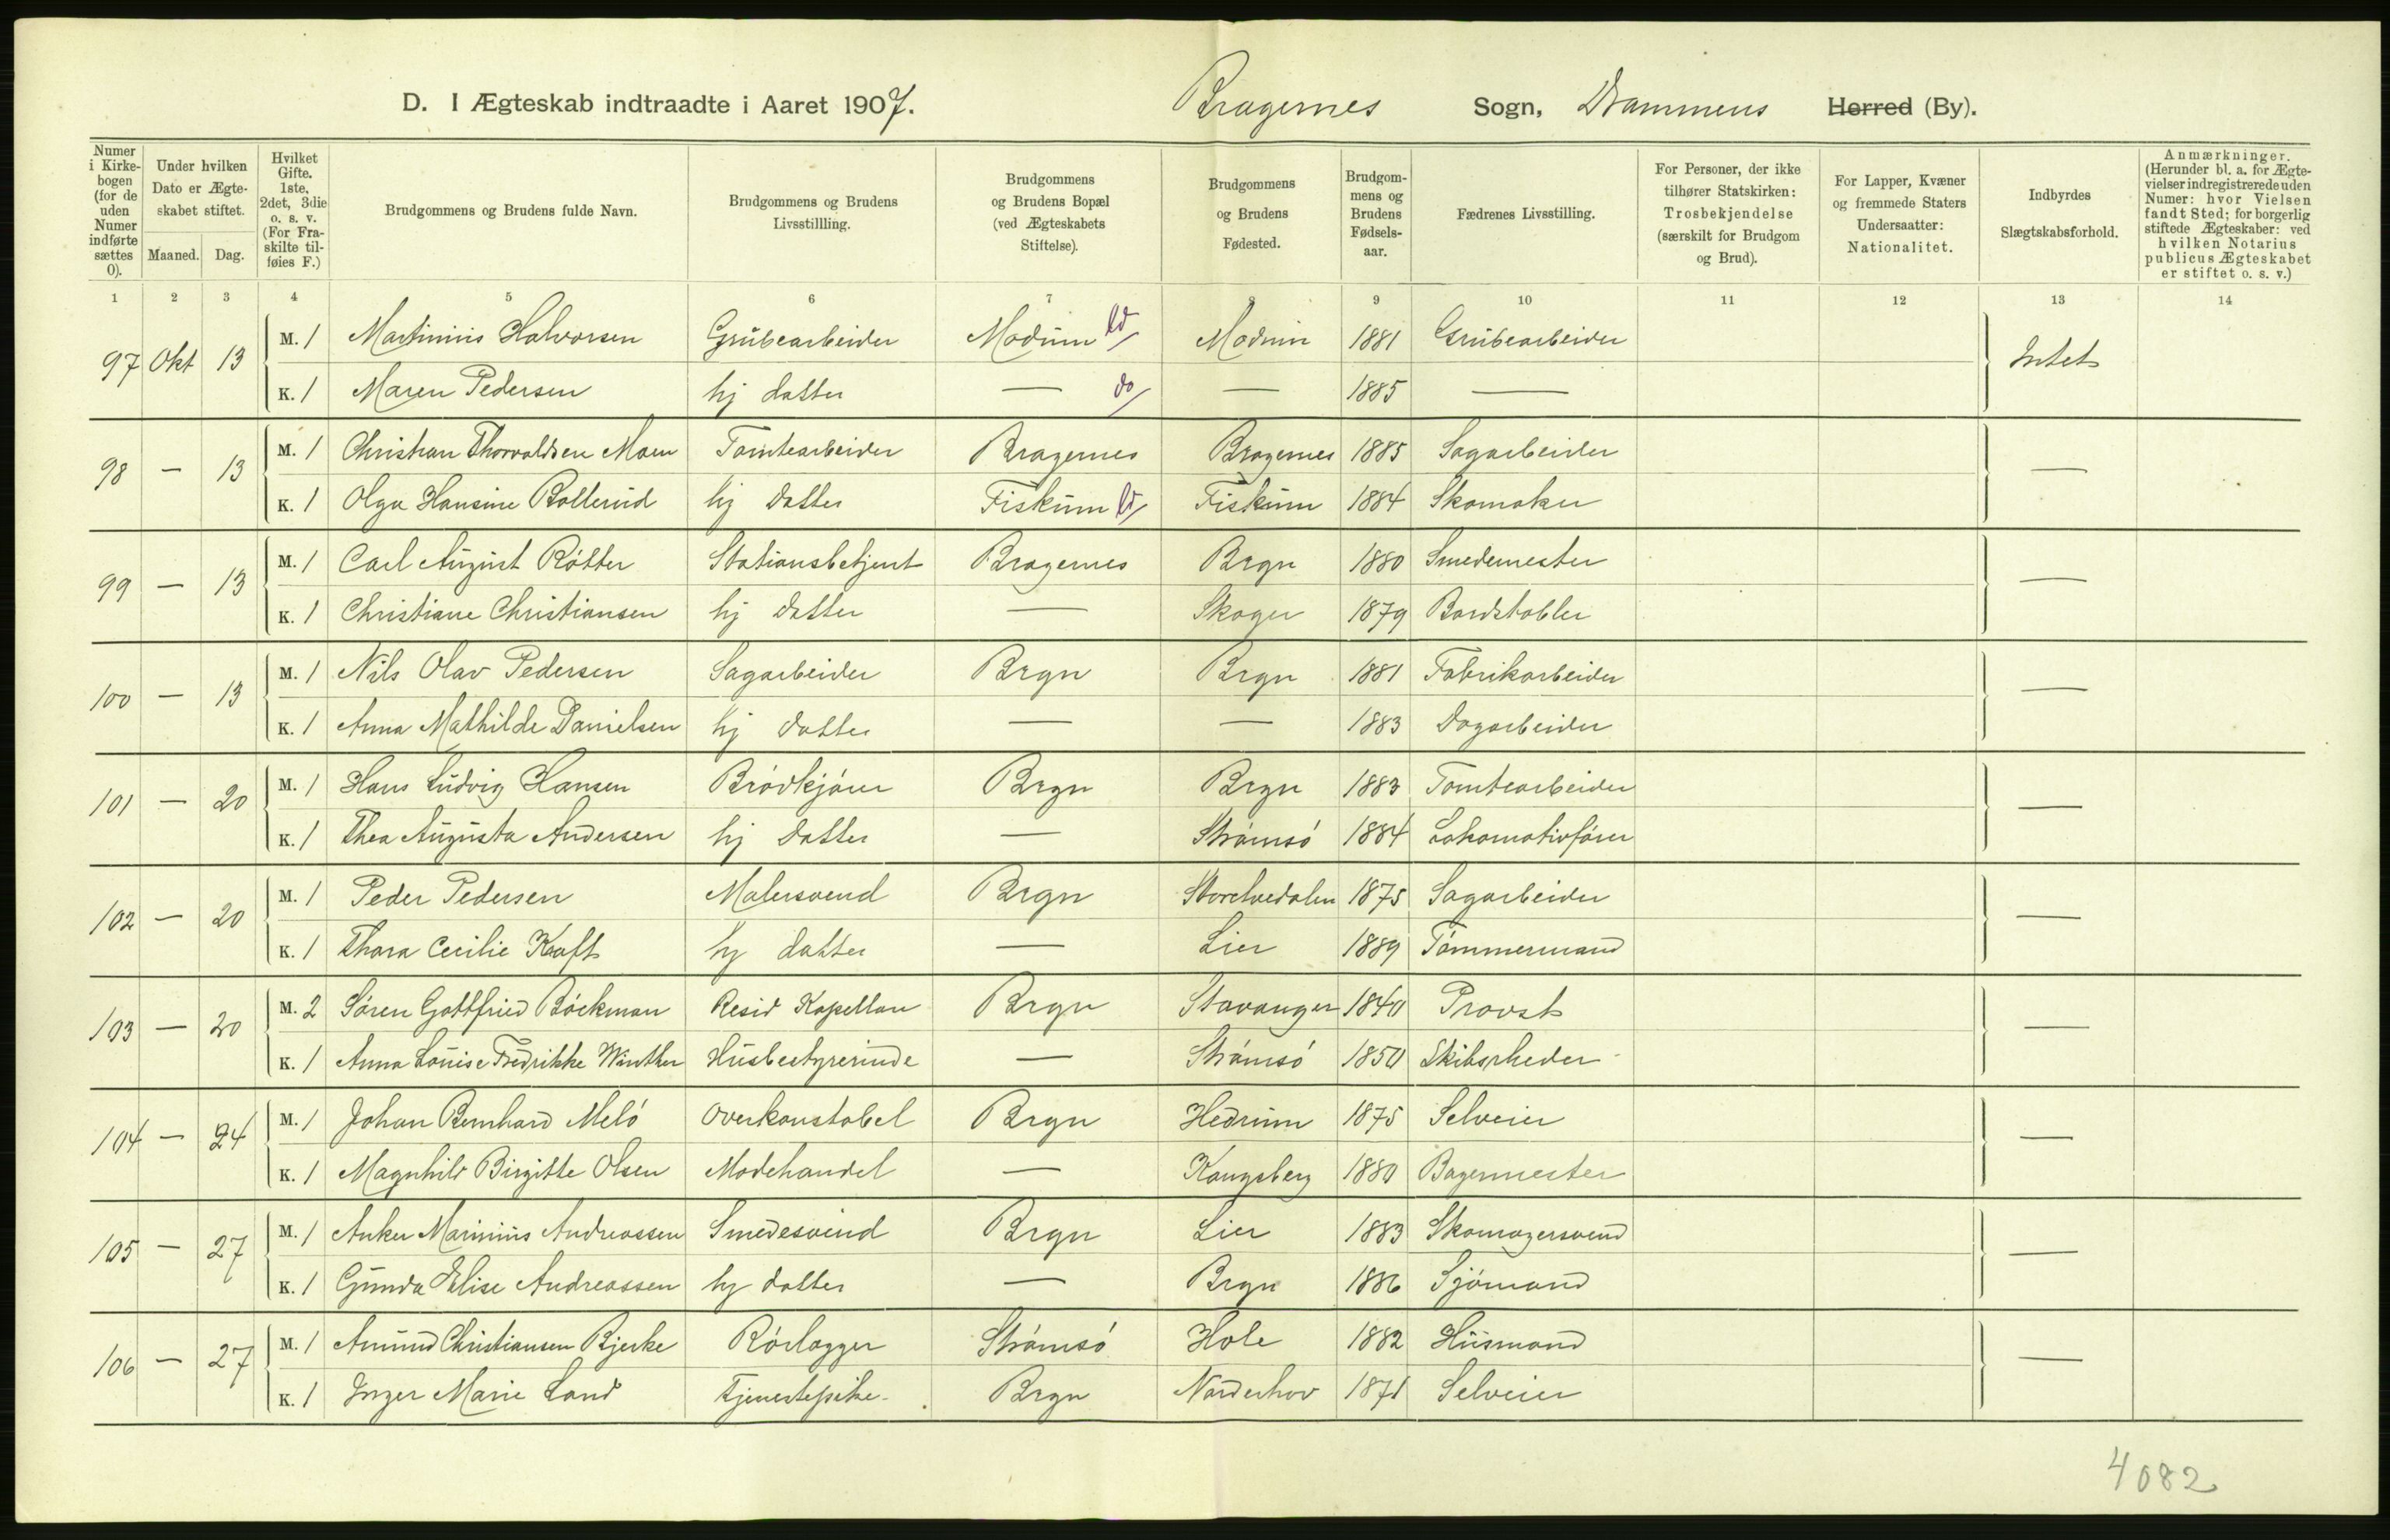 D. I Ægteskab indtraadte i Aaret 1907. Bragernes Sogn, Drammens Herred (By).
Numer i Kirkebogen (for de uden Numer indførte sættes 0).
Under hvilken Dato er Ægteskabet stiftet.
Maaned. Dag.
Hvilket Gifte. 1ste, 2det, 3die o. s. v. (For Fraskilte tilføies F.)
Brudgommens og Brudens fulde Navn.
Brudgommens og Brudens Livsstillling.
Brudgommens og Brudens Bopæl (ved Ægteskabets Stiftelse).
Brudgommens og Brudens Fødested.
Brudgommens og Brudens Fødselsaar.
Fædrenes Livsstilling.
For Personer, der ikke tilhører Statskirken: Trosbekjendelse (særskilt for Brudgom og Brud).
For Lapper, Kvæner og fremmede Staters Undersaatter: Nationalitet.
Indbyrdes Slægtskabsforhold.
Anmærkninger. (Herunder bl. a. for Ægtevielser indregistrerede uden Numer: hvor Vielsen fandt Sted; for borgerlig stiftede Ægteskaber: ved hvilken Notarius publicus Ægteskabet er stiftet o. s. v.)
1 2 3 4 5 6 7 8 9 10 11 12 13 14
97 Okt 13 M. 1 Martinius Halvorsen Grubearbeider Modum Modum 1881 Grubearbeider Intet
K. 1 Maren Pedersen hj datter — do — 1885 —
98 — 13 M. 1 Christian Thorvaldsen Moen Tomtearbeider Bragernes Bragernes 1885 Sagarbeider —
K. 1 Olga Hansine Bollerud hj datter Fiskum Fiskum 1884 Skomaker
99 — 13 M. 1 Carl August Rötter Stationsbetjent Bragernes Brgn 1880 Smedemester —
K. 1 Christiane Christiansen hj datter — Skoger 1879 Bordstabler
100 — 13 M. 1 Nils Olav Pedersen Sagarbeider Brgn Brgn 1881 Fabrikarbeider —
K. 1 Anna Mathilde Danielsen hj datter — — 1883 Dagarbeider
101 — 20 M. 1 Hans Ludvig Hansen Brödkjörer Brgn Brgn 1883 Tomtearbeider —
K. 1 Thea Augusta Andersen hj datter — Strömsö 1884 Lokomotivförer
102 — 20 M. 1 Peder Pedersen Malersvend Brgn Storelvedalen 1875 Sagarbeider —
K. 1 Thora Cecilie Kraft hj datter — Lier 1889 Tömmermand
103 — 20 M. 2 Sören Gottfried Böckman Resid Kapellan Brgn Stavanger 1840 Provst —
K. 1 Anna Louise Fredrikke Winther Husbestyrerinde — Strömsö 1850 Skibsrheder
104 — 24 M. 1 Johan Bernhard Melö Overkonstabel Brgn Hedrum 1875 Selveier —
K. 1 Magnhild Birgitte Olsen Modehandel — Kongsberg 1880 Bagermester
105 — 27 M. 1 Anker Marinius Andreassen Smedesvend Brgn Lier 1883 Skomagersvend —
K. 1 Gunda Elise Andreassen hj datter — Brgn 1886 Sjömand
106 — 27 M. 1 Amund Christiansen Bjerke Rörlægger Strömsö Hole 1882 Husmand —
K. 1 Inger Marie Land Tjenestepike Brgn Norderhov 1871 Selveier
4082